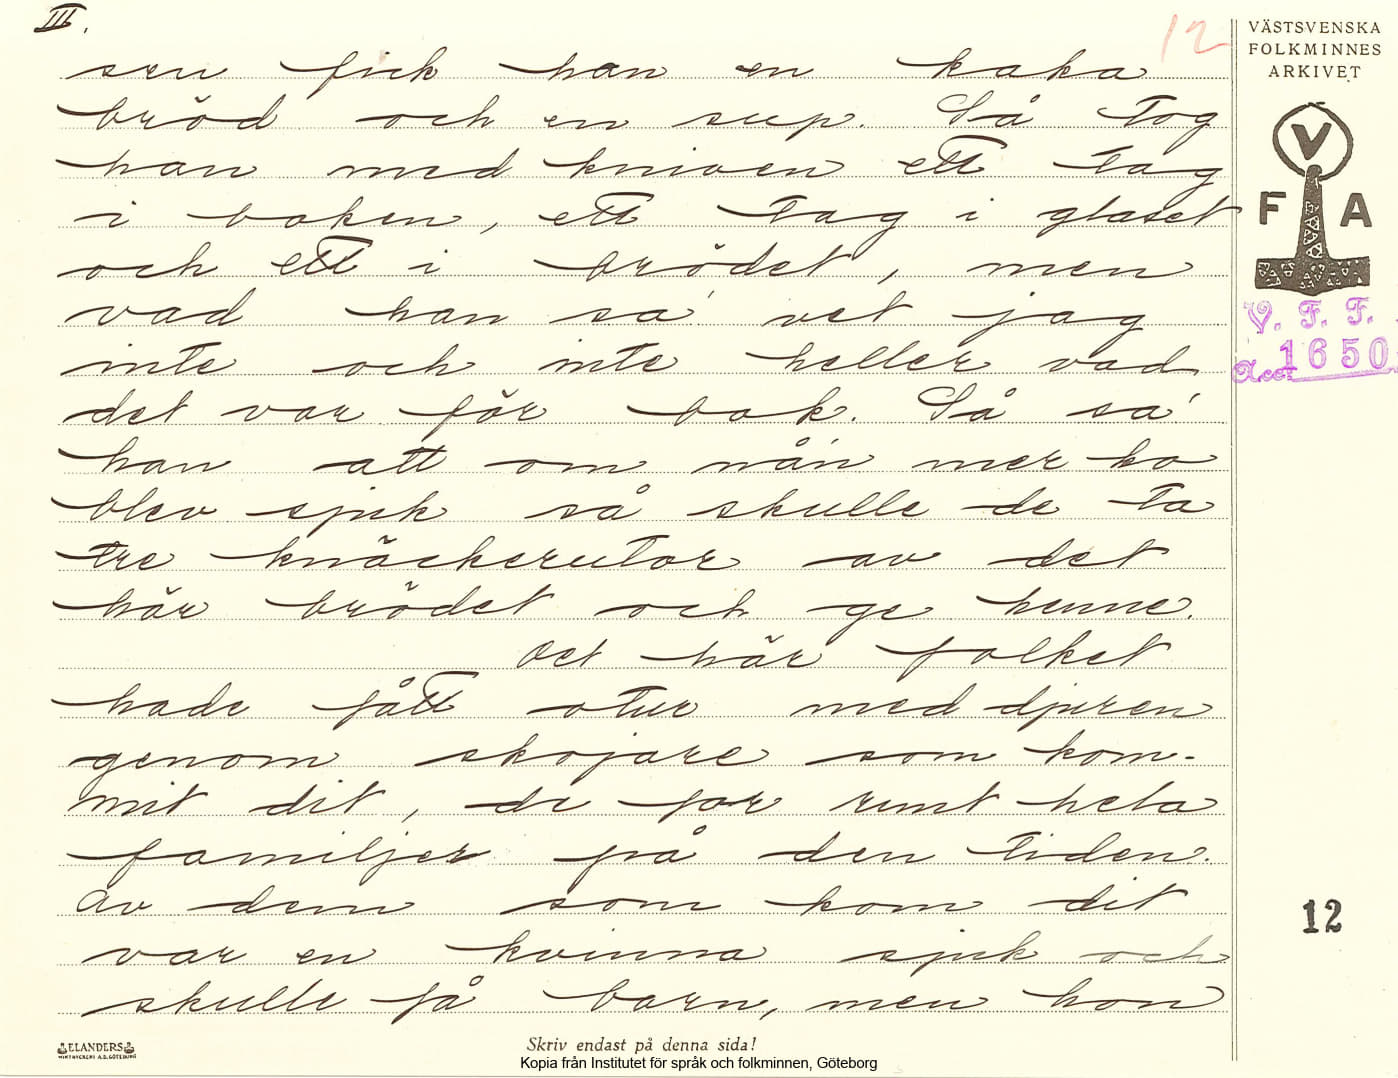 III.
12
VÄSTSVENSKA
FOLKMINNES
ARKIVET
sen fick han en kaka
bröd och en sup. Så tog
han med kniven ett tag
i boken, ett tag i glaset
och ett i brödet, men
vad han sa' vet jag
inte och inte heller vad
det var för bok. Så sa'
han att om nån mer ko
blev sjuk så skulle de ta
tre knäckerutor av det
här brödet och ge henne.
Det här folket
hade fått otur med djuren
genom skojare som kom-
mit dit, de for runt hela
familjer på den tiden.
Av dem som kom dit
var en kvinna sjuk och
skulle få barn, men hon
V
F A
V. F. F.
Acc. 1650
12
ELANDERS
Skriv endast på denna sida!
Kopia från Institutet för språk och folkminnen, Göteborg